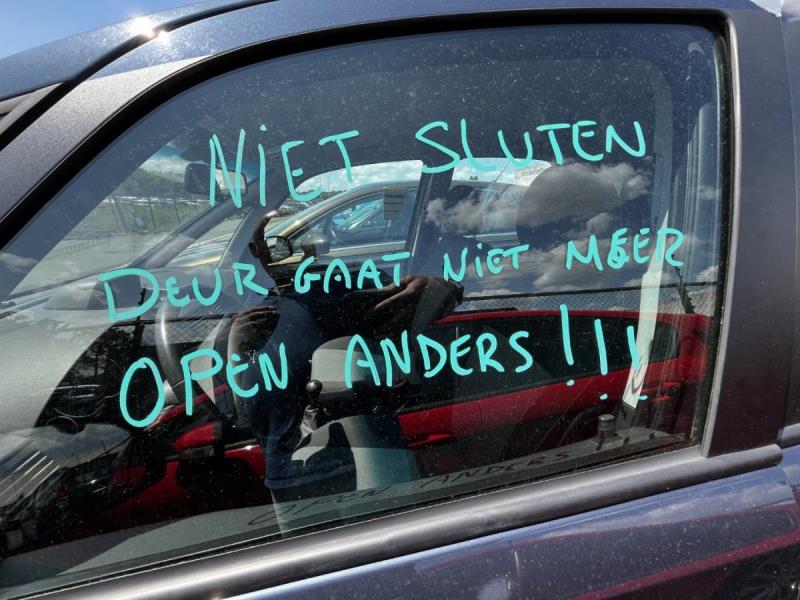 NIET SLUTEN
DEUR GAAT NIET MEER
OPEN ANDERS!!!
OPEN ANDERS!!!